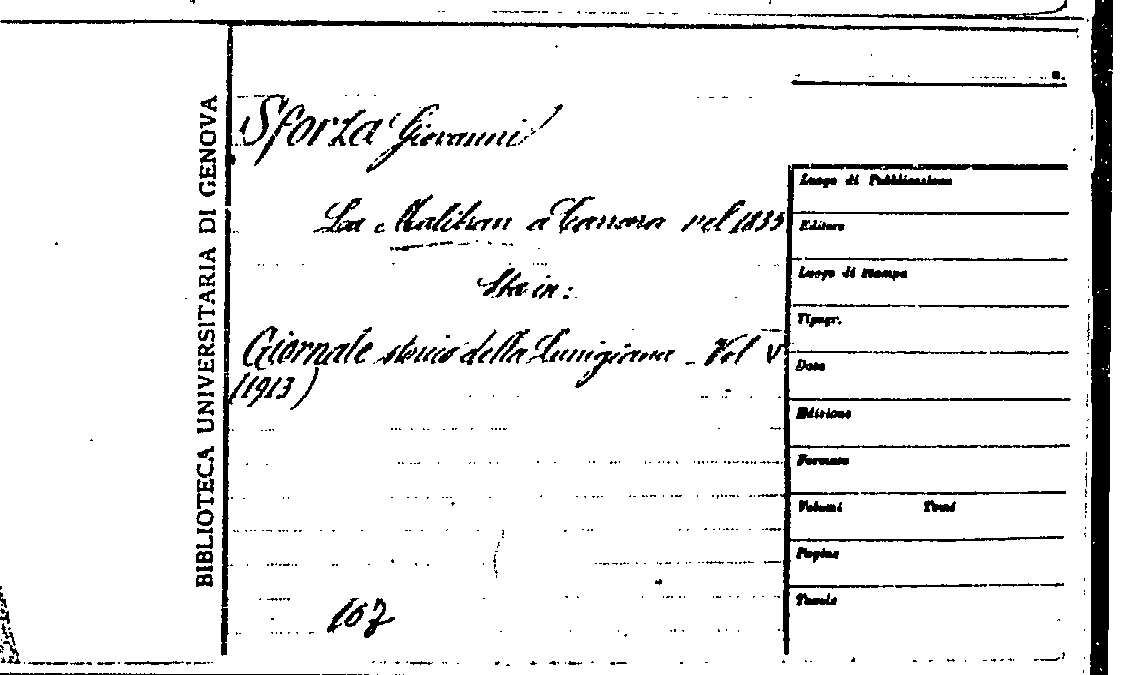 BIBLIOTECA UNIVERSITARIA DI GENOVA
Sforza Giovanni
La Malibran a Carrara nel 1835
Sta in:
Giornale storico della Lunigiana - Vol V
(1913)
107
n.
Luogo di Pubblicazione
Editore
Luogo di stampa
Tipogr.
Data
Edizione
Formato
Volumi Tomi
Pagine
Tavole